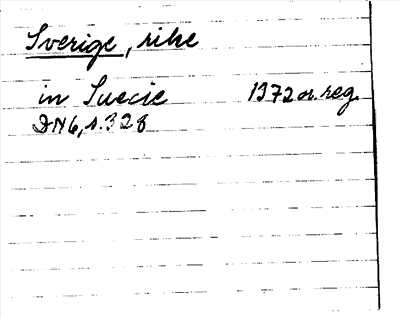 Sverige, rike
in Suecie 1372 or. reg.
DN6, s. 328